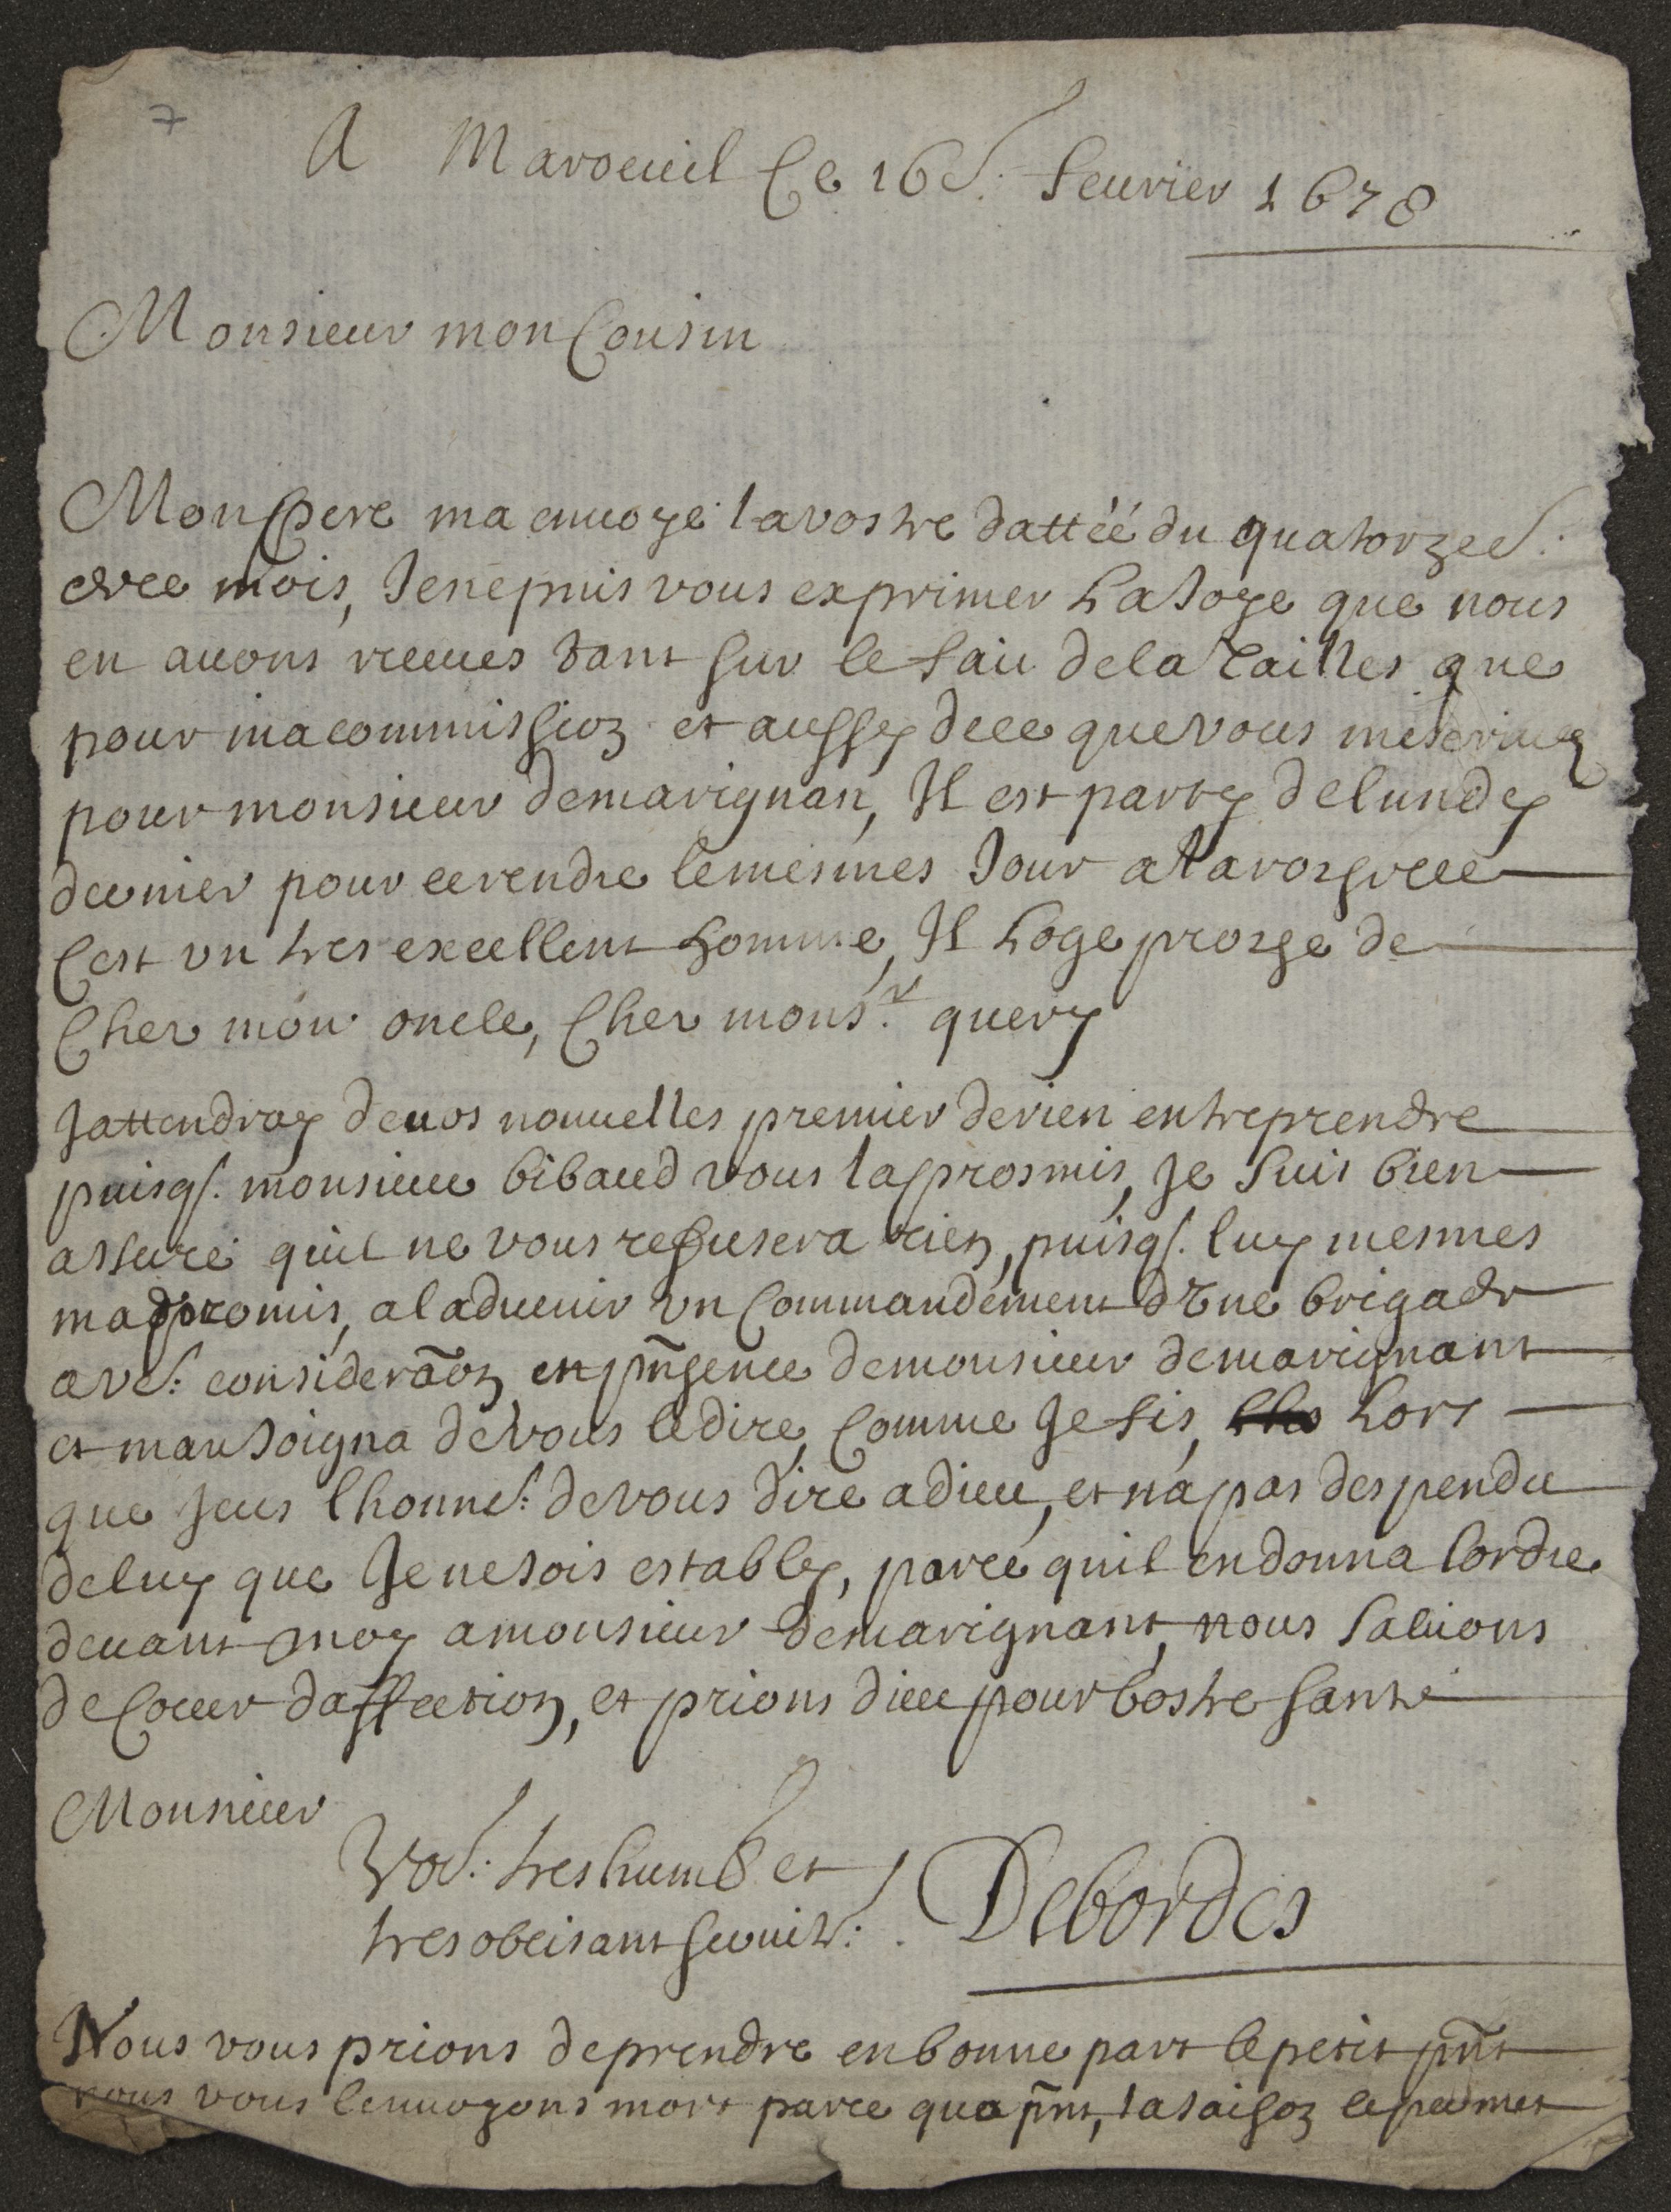 7
A Maroeuil Ce 16e. feuvrier 1678
Monsieur mon Cousin
Mon Pere ma enuoye la vostre dattéé du quatorzee.
de ce mois, Je ne puis vous exprimer La Joye que nous
en auons receues tant sur le fait de la tailles que
pour ma commission et aussy de ce que vous mescriuez
pour monsieur de marignan, Il est party de lundy
dernier pour ce rendre le mesmes Jour a la rosghelle
C'est vn tres excellent homme, Il Loge prosge de
Chez mon oncle, Chez monsr. query
Jattendray de uos nouuelles premier de rien entreprendre
puisq. monsieur bibaud vous la prosmis, Je suis bien
assuré quil ne vous refusera rien, puisq. luy mesmes
ma promis, a laduenir vn Commandement dvne brigade
ave. considerāon en pñsence de monsieur de marignant
et man Joigna de vous le dire, Comme Je fis, Lors
que Jeus lhonne. de vous dire adieu, et na pas despendu
de luy que Je ne sois establly, parce quil en donna lordre
deuant moy a monsieur de marignant, nous saluons
de Coeur daffection, et prions dieu pour vostre santé
Monsieur
Voe. tres humb et
tres obeisant seruite.
Debordes
Nous vous prions de prendre en bonne part le petit pñt
nous vous lenuoyons mort parce qua pñt, la saison le permet